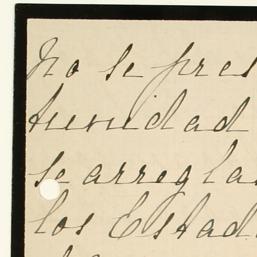 No se pres
tunidad
se arregla
los Estad